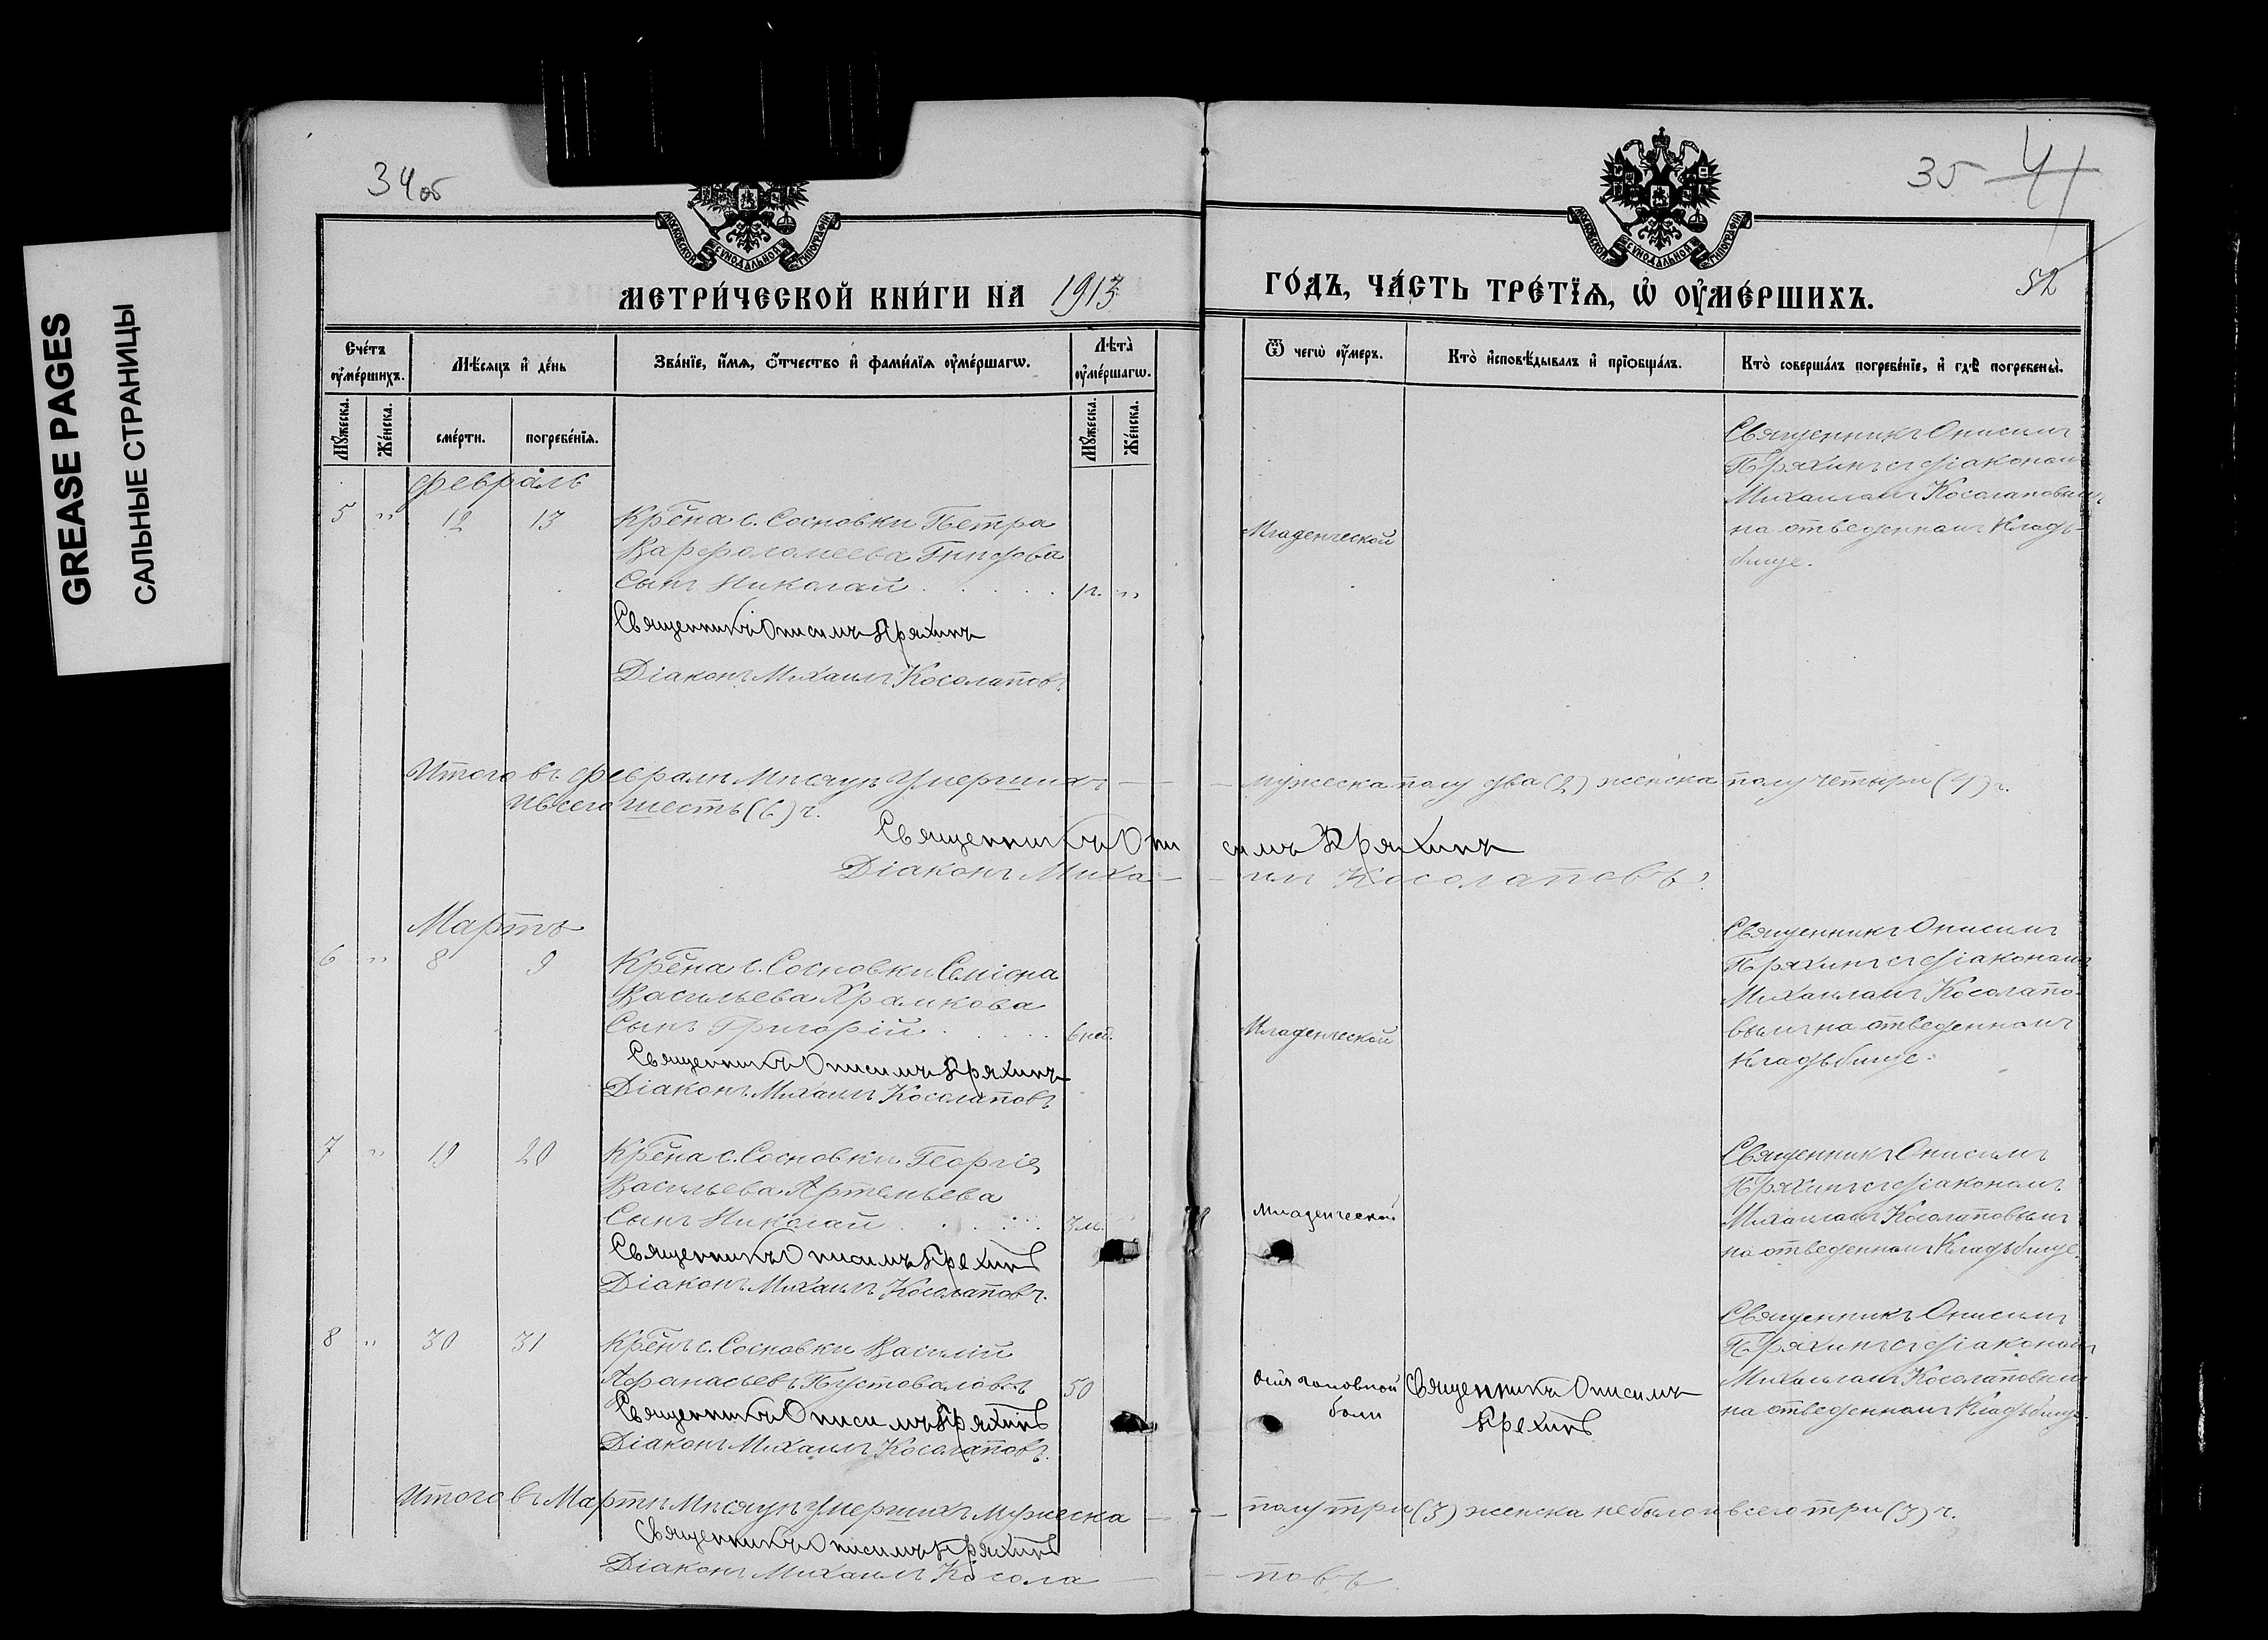 GREASE PAGES
САЛЬНЫЕ СТРАНИЦЫ
34об
35 41
52
МОСКОВСКОЙ СѴНОДАЛЬНОЙ ТИПОГРАФІИ
МОСКОВСКОЙ СѴНОДАЛЬНОЙ ТИПОГРАФІИ
МЕТРИ́ЧЕСКОЙ КНИ́ГИ НА 1913 ГО́ДЪ, ЧА́СТЬ ТРЕ́ТЇѦ, Ѡ҆ ОУ҆МЕ́РШИХЪ.
Сче́тъ оу҆ме́ршихъ.
Мѣ́сяцъ и҆ де́нь
Зва́нїе, и҆́мѧ, ѻ҆́тчество и҆ фами́лїѧ оу҆ме́ршагѡ.
Лѣ́та оу҆ме́ршагѡ.
Ѿ чегѡ̀ оу҆́меръ.
Кто̀ и҆сповѣ́дывалъ и҆ прїѻбща́лъ.
Кто̀ соверша́лъ погребе́нїе, и҆ гдѣ̀ погребены̀.
Мꙋ́жеска.
Же́нска.
сме́рти.
погребе́нїѧ.
Мꙋ́жеска.
Же́нска.
Февраль
5 " 12 13
Крѣна с. Сосновки Петра
Варфоломеева
Сынъ Николай . . . . . 1г. "
Священникъ Онисимъ Пряхинъ
Діаконъ Михаилъ Косолаповъ.
Младенческой
Священникъ Онисимъ
Пряхинъ съ діакономъ
Михаиломъ Косолаповымъ
на отведенномъ Кладь-
бище.
Итого въ Февралѣ мѣсяцѣ умершихъ — — мужеска полу два (2) женска полу четыри (4) ч.
И всего шесть (6) ч.
Священникъ Они симъ Пряхинъ
Діаконъ Миха — — илъ Косолаповъ.
Мартъ
6 " 8 9
Крѣна с. Сосновки Семіона
Васильева Храмкова
Сынъ Григорій . . . . . 6 нед.
Священникъ Онисимъ Пряхинъ
Діаконъ Михаилъ Косолаповъ
Младенческой
Священникъ Онисимъ
Пряхинъ съ діакономъ
Михаиломъ Косолапо-
вымъ на отведенномъ
кладьбище.
7 " 19 20
Крѣна с. Сосновки Георгія
Васильева Артемьева
Сынъ Николай . . . . . 3м.
Священникъ Онисимъ Пряхинъ
Діаконъ Михаилъ Косолаповъ.
Младенческой
Священникъ Онисимъ
Пряхинъ съ діакономъ
Михаиломъ Косолаповымъ
на отведенномъ Кладьбище.
8 " 30 31
Крѣнъ с. Сосновки Василій
Афанасьевъ Пустоваловъ 50
Священникъ Онисимъ Пряхинъ
Діаконъ Михаилъ Косолаповъ.
головной
боли
Священникъ Онисимъ
Пряхинъ
Священникъ Онисимъ
Пряхинъ съ діакономъ
Михаиломъ Косолаповымъ
на отведенномъ Кладьбище.
Итого въ Мартѣ Мѣсяцѣ умершихъ мужеска — — полу три (3) женска не было и всего три (3) ч.
Священникъ Онисимъ Пряхинъ
Діаконъ Михаилъ Косола — — повъ